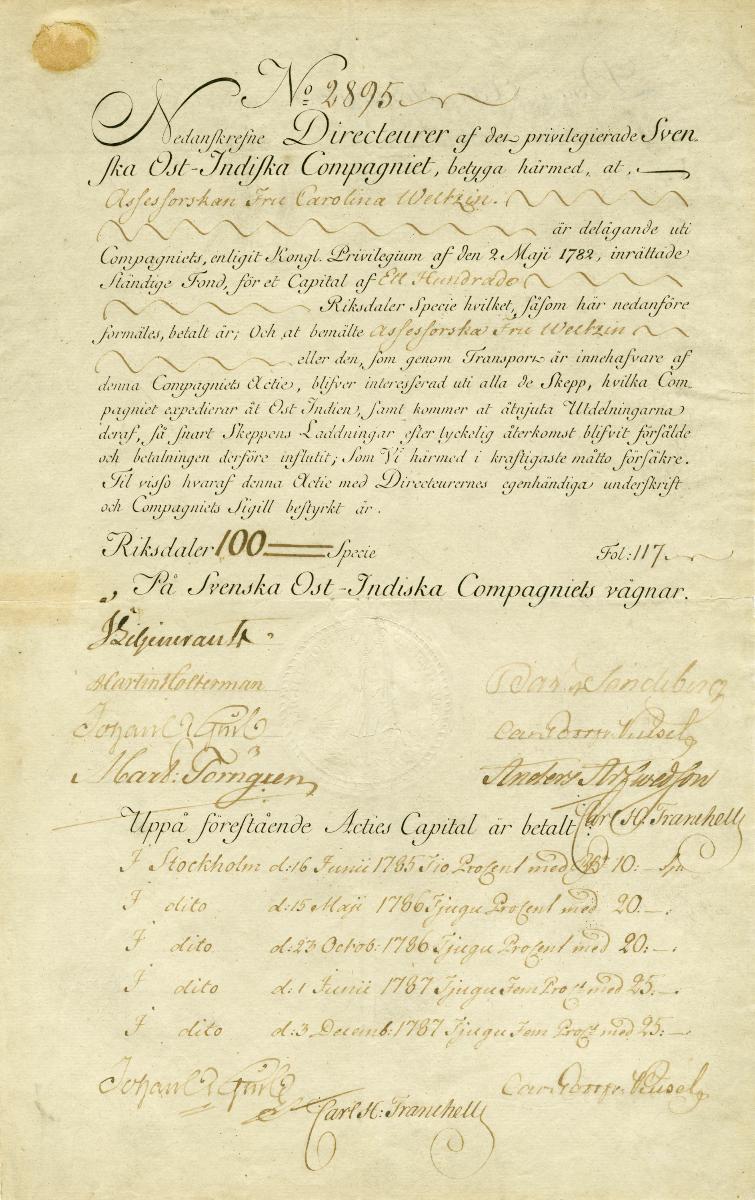 No 2895
Nedanskrefne Directeurer af den privilegierade Sven-
ska Ost-Indiska Compagniet, betyga härmed, at,
Assessorskan Fru Carolina Weltzin.
är delägande uti
Compagniets, enligit Kongl. Privilegium af den 2 Maji 1782, inrättade
Ständige Fond, för et Capital af Ett Hundrade
Riksdaler Specie hvilket, såsom här nedanföre
förmäles, betalt är; Och at bemälte Assessorska Fru Weltzin
eller den, som genom Transport är innehafvare af
denna Compagniets Actie, blifver interesserad uti alla de Skepp, hvilka Com-
pagniet expedierar åt Ost Indien, samt kommer at åtnjuta Utdelningarna
deraf, så snart Skeppens Laddningar efter lyckelig återkomst blifvit försålde
och betalningen derföre influtit; Som Vi härmed i kraftigaste måtto försäkre.
Til visso hvaraf denna Actie med Directeurernes egenhändiga underskrift
och Compagniets Sigill bestyrkt är.
Riksdaler 100 Specie Fol: 117
På Svenska Ost-Indiska Compagniets vägnar.
Martin Holterman
Mart: Törngren Anders Arfwedson
Carl H: Tranchell
Uppå förestående Acties Capital är betalt:
I Stockholm d: 16 Junii 1785 Tio Procent med 10:
I dito d: 15 Maji 1786 Tjugu Procent med 20:
I dito d: 23 Octob: 1786 Tjugu Procent med 20:
I dito d: 1 Junii 1787 Tjugu Fem Proct med 25:
I dito d: 3 Decemb: 1787 Tjugu Fem Proct med 25:
Carl H: Tranchell